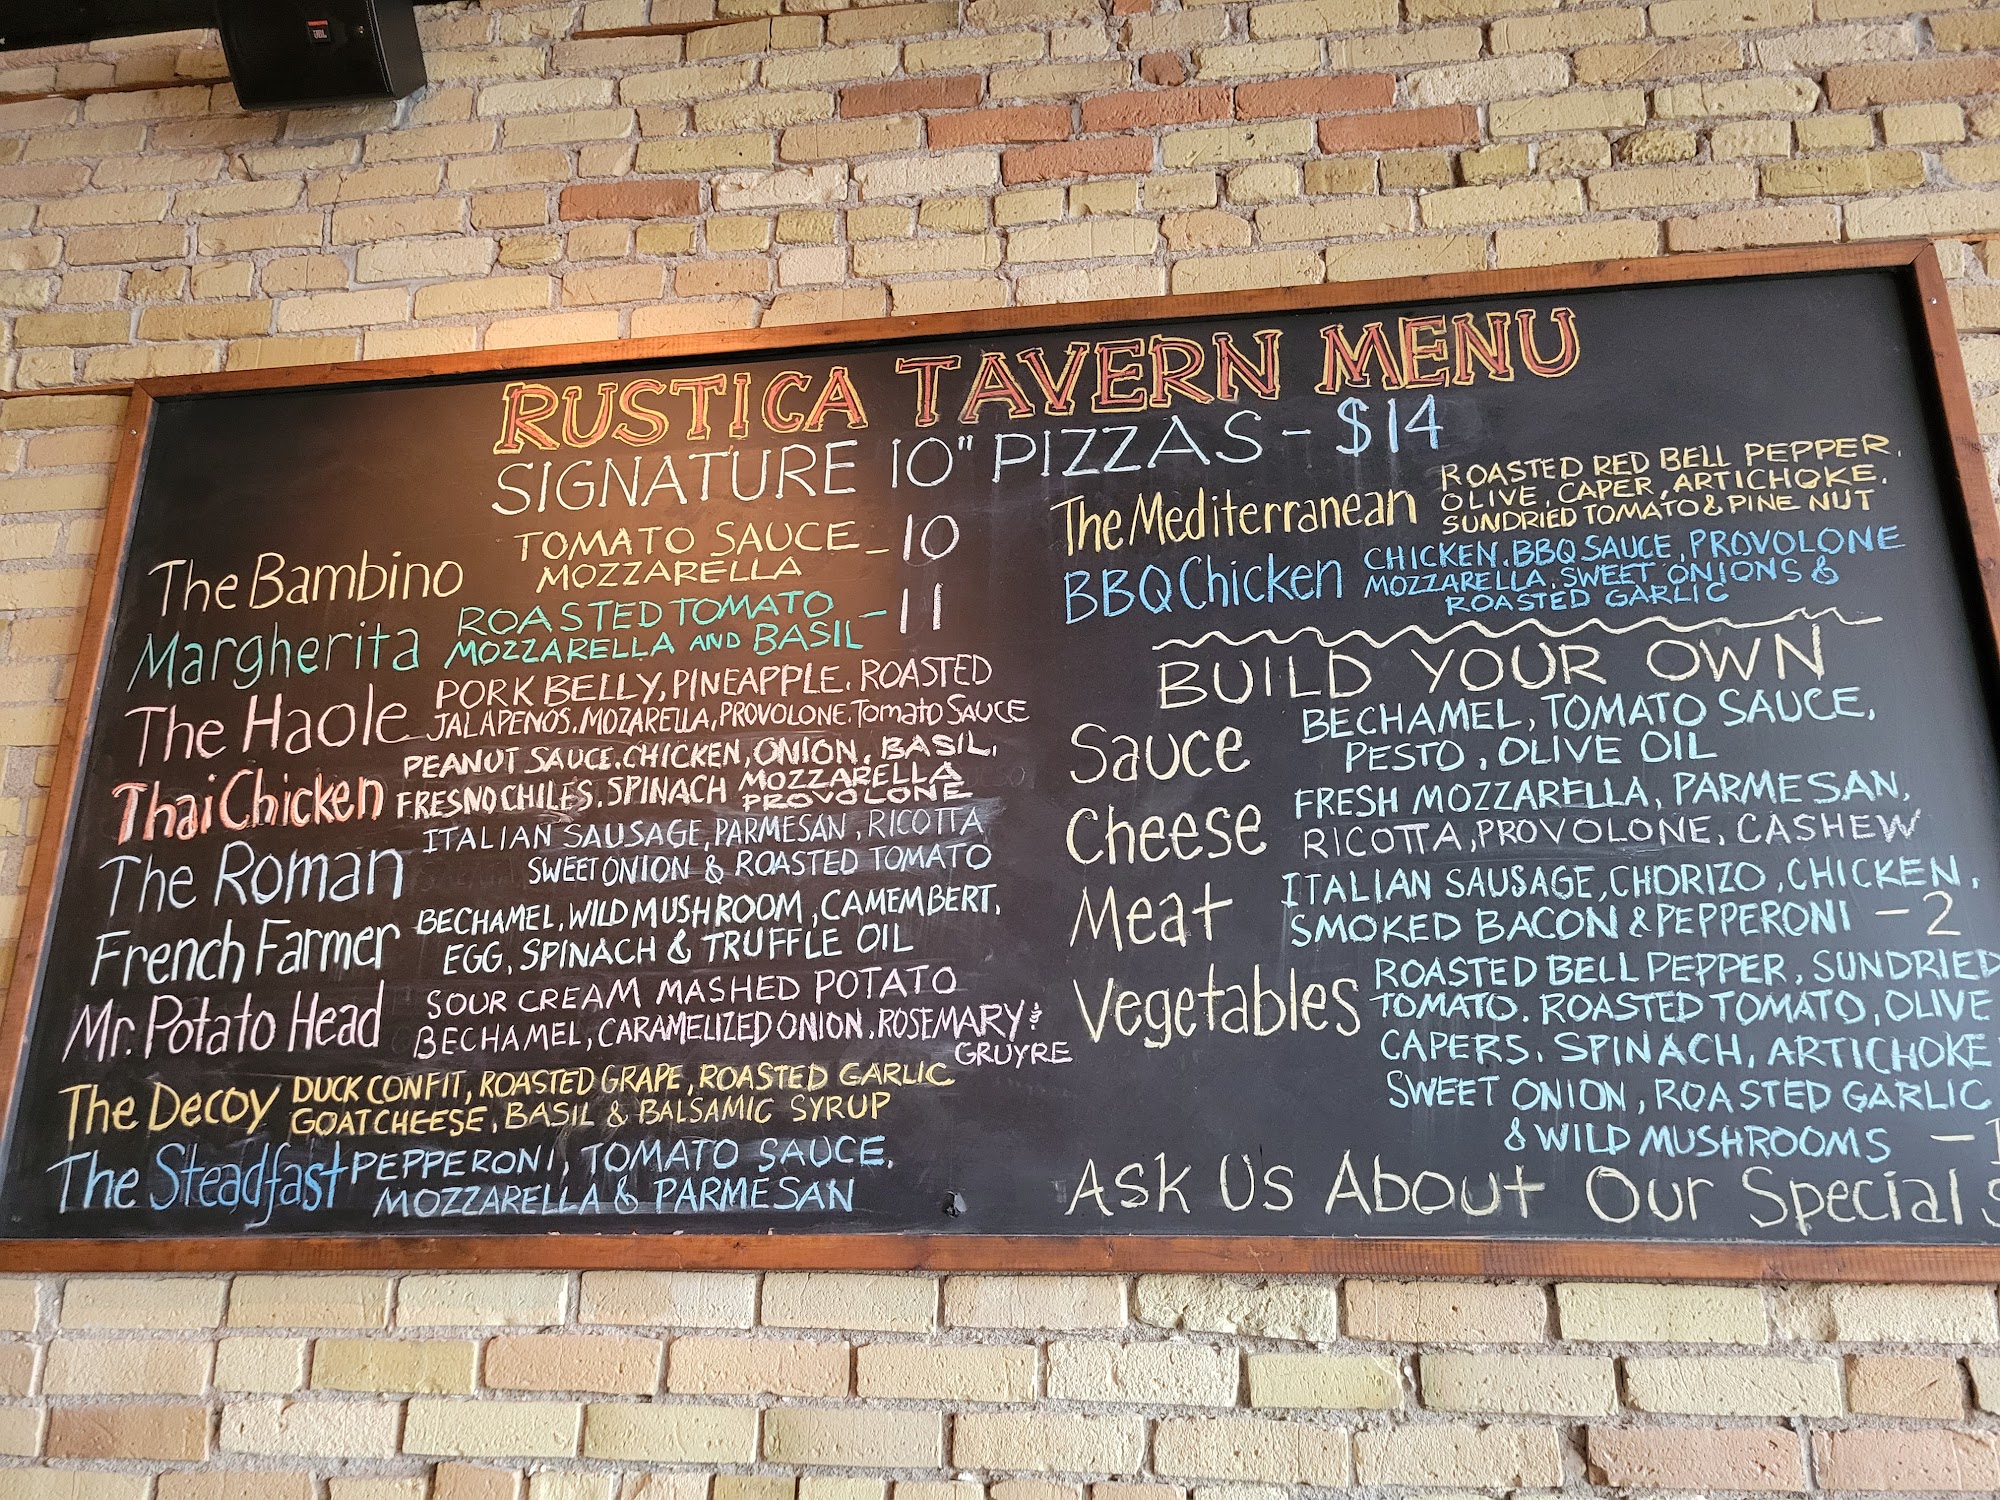 JBL
RUSTICA TAVERN MENU
SIGNATURE 10" PIZZAS - $14
The Bambino TOMATO SAUCE - 10
MOZZARELLA
Margherita ROASTED TOMATO - 11
MOZZARELLA AND BASIL
The Haole PORK BELLY, PINEAPPLE, ROASTED
JALAPENOS, MOZARELLA, PROVOLONE, TOMATO SAUCE
Thai Chicken PEANUT SAUCE, CHICKEN, ONION, BASIL,
FRESNO CHILES, SPINACH MOZZARELLA
PROVOLONE
The Roman ITALIAN SAUSAGE, PARMESAN, RICOTTA
SWEET ONION & ROASTED TOMATO
French Farmer BECHAMEL, WILD MUSHROOM, CAMEMBERT,
EGG, SPINACH & TRUFFLE OIL
Mr. Potato Head SOUR CREAM MASHED POTATO
BECHAMEL, CARAMELIZED ONION, ROSEMARY &
GRUYRE
The Decoy DUCK CONFIT, ROASTED GRAPE, ROASTED GARLIC
GOAT CHEESE, BASIL & BALSAMIC SYRUP
The Steadfast PEPPERONI, TOMATO SAUCE,
MOZZARELLA & PARMESAN
The Mediterranean ROASTED RED BELL PEPPER,
OLIVE, CAPER, ARTICHOKE,
SUNDRIED TOMATO & PINE NUT
BBQ Chicken CHICKEN, BBQ SAUCE, PROVOLONE
MOZZARELLA, SWEET ONIONS &
ROASTED GARLIC
BUILD YOUR OWN
Sauce BECHAMEL, TOMATO SAUCE,
PESTO, OLIVE OIL
Cheese FRESH MOZZARELLA, PARMESAN,
RICOTTA, PROVOLONE, CASHEW
Meat ITALIAN SAUSAGE, CHORIZO, CHICKEN,
SMOKED BACON & PEPPERONI - 2
Vegetables ROASTED BELL PEPPER, SUNDRIED
TOMATO, ROASTED TOMATO, OLIVE
CAPERS, SPINACH, ARTICHOKE
SWEET ONION, ROASTED GARLIC
& WILD MUSHROOMS -
Ask Us About Our Specials